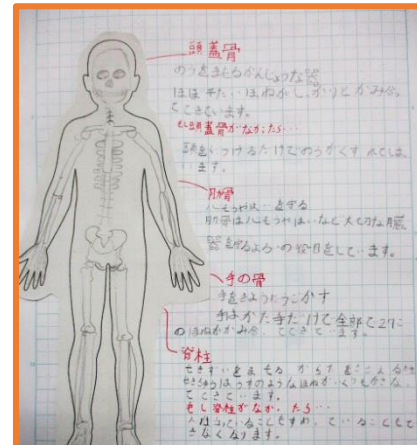 頭蓋骨
のうをまもるがんじょうな器
ほぼ平たいほねがしっかりとかみ合
てできています。
もし頭蓋骨がなかったら…
頭をぶつけるだけでのうがくずれてしま
います。
肋骨
を守る
肋骨は心ぞうやはいなど大切な臓
器を守るよろいの役目をしています。
手の骨
手をきようにうごかす
手はかた手だけで全部で27こ
のほねがかみ合ってできています。
脊柱
せきずいをまもる からだをささえる
せきちゅうはうすのようなほねがいくつもかさなっ
てできています。
もし脊柱がなかったら…
人は立っていることもすわっていることもで
きなくなります。